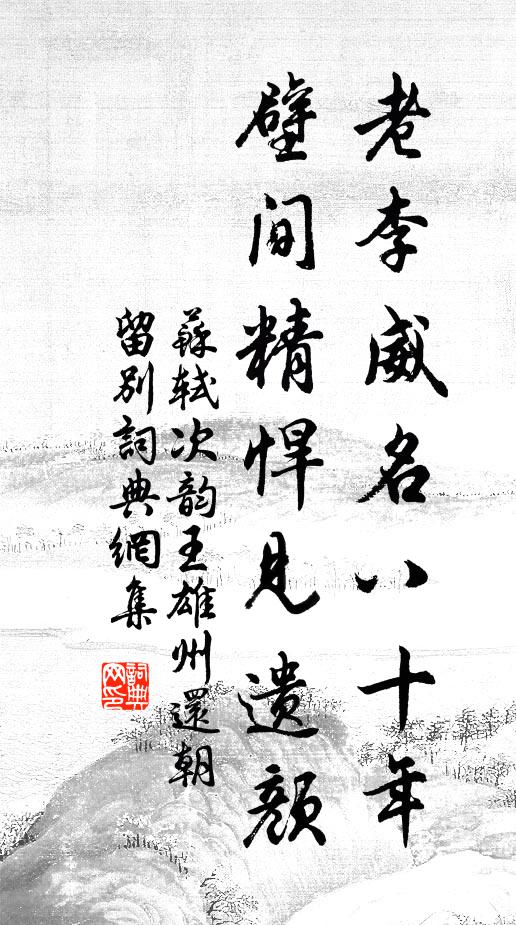 老李威名八十年
壁间精悍見遗颜
蘇轼次韵王雄州還朝
留别詞典網集
詞典
网印